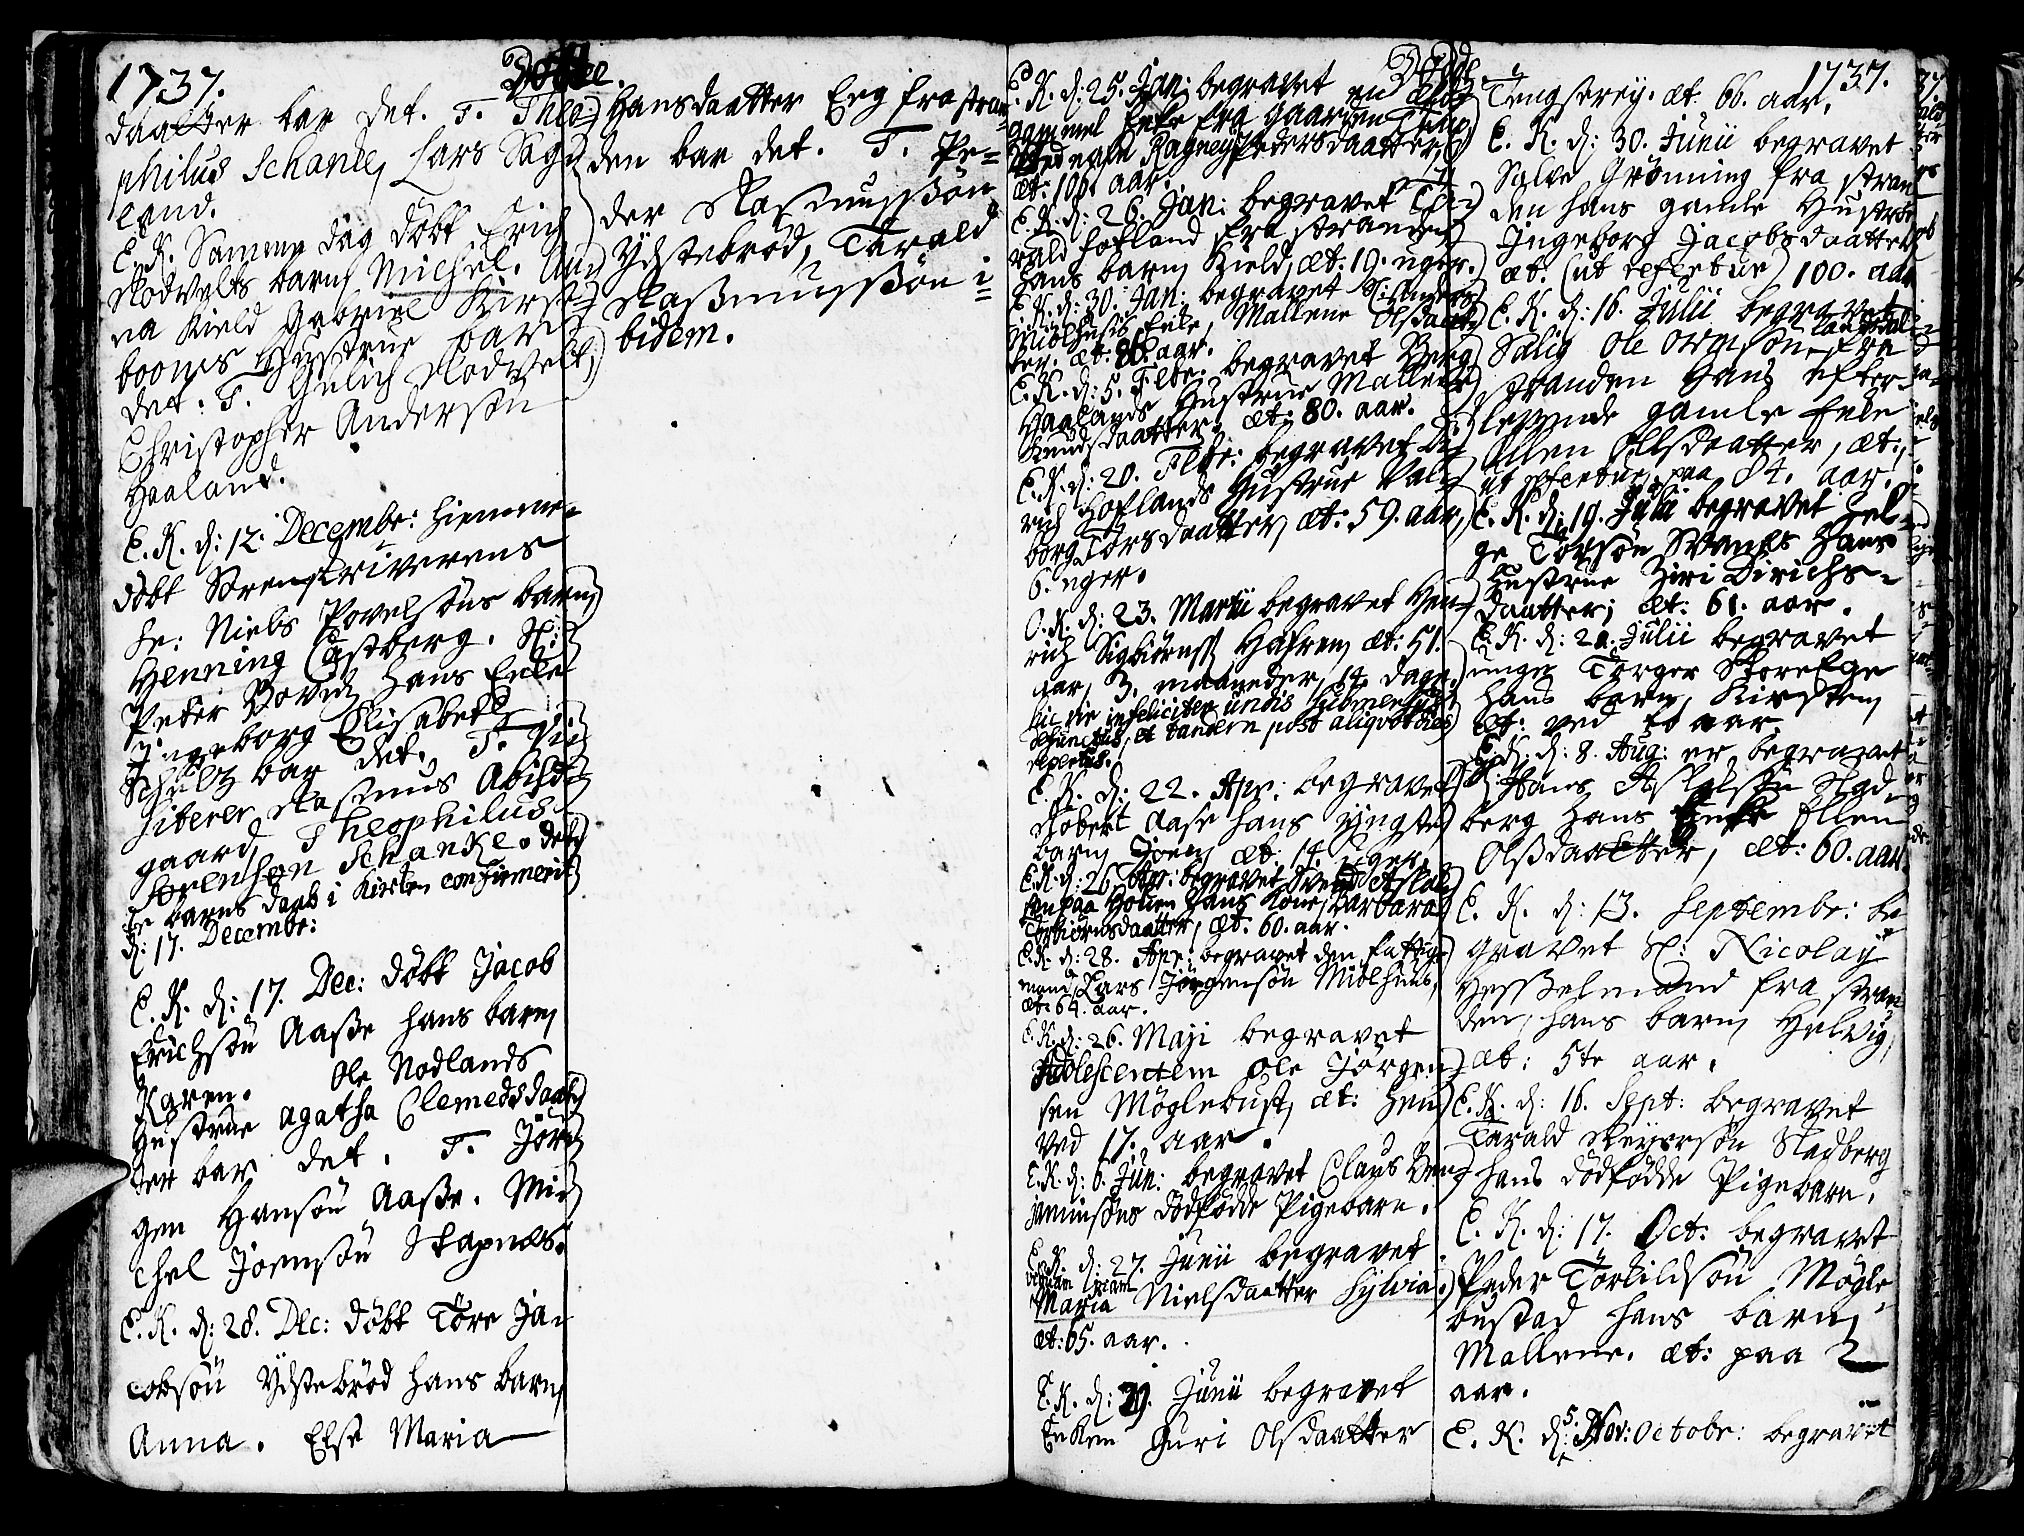 1737.
Døbte.
daatter bar det. T. Theo=
philus Schanke, Lars Sag=
land.
E. K. Samme dag døbt Erich
Rodvelts barn Michel. An=
na Kield Gabriel Kirste=
booms Hustrue bar
det. T. Gulich Rodvelt,
Christopher Andersøn
Haaland.
E. K. d: 12. Decembr: hiemme=
døbt Sorenskriverens
Sr: Niels Povelsøns barn
Henning Castberg. Sl:
Peder Boved hans Enke
Ingeborg Elisabeth
Schultz bar det. T. Vi=
siterer Rasmus Abild=
gaard, Theophilus
Sørensøn Schanke. det=
te barns daab i Kirken confirmerit
d: 17. Decembr:
E. K. d: 17. Dec: døbt Jacob
Erichsøn Aasse hans barn
Karen. Ole Nodlands
Hustrue Agatha Clemedsdaat=
ter bar det. T. Jør=
gen Hansøn Aasse. Mi=
chel Joensøn Skapnæs.
E. K. d: 28. Dec: døbt Tøre Ja=
cobsøn Ydstebrød hans barn
Anna. Else Maria
Hansdaatter Eeg fra Stran=
den bar det. T. Pe=
der Rasmussøn
Ydstebrød, Tarald
Rasmussøn i=
bidem.
Døde.
E. K. d. 25. Jan: begravet en
gammel Enke fra gaarden Teng=
navn Ragney Pedersdaatter
æt: 106 aar.
E. K. d: 26. Jan: begravet Ta=
rald Hofland fra Stranden
hans barn Kield, æt: 19. uger.
E. K. d: 30. Jan: begravet Sl: Anders
Miølhuses Enke, Mallene Olsdaat=
ter. æt: 86. aar.
E. K. d: 5. Febr: begravet Berg
Haalands Hustrue Mallene
Knudsdaatter, æt: 80. aar.
E. K. d: 20. Febr: begravet Di=
rich Hoflands Hustrue Val=
borg Torsdaatter, æt: 59. aar,
6. uger.
O. K. d: 23. Martii begravet Hen=
rich Sigbiørns: Hafren, æt: 51.
aar, 3. maaneder, 14. dage.
hic vir infeliciter undis submersus
defunctus, et tandem post aliquot dies
repertus.
E. K. d: 22. Apr: begravet
Robert Aase hans yngste
barn Joen, æt: 14. uger.
E. K. d: 26 Apr: begravet Svend Aslak=
søn paa Holien hans Kone, Barbara
Torbiørnsdaatter, æt: 60. aar.
E. K. d: 28. Apr: begravet den fattige
mand Lars Jørgensøn Miølhuus,
æt: 64. aar.
E. K. d: 26. Maji begravet
Adolescentem Ole Jørgen=
sen Møglebust, æt: hen
ved 17. aar.
E. K. d: 6. Jun: begravet Claus Ben=
jaminsøns dødfødde Pigebarn.
E. K. d: 27. Junii begravet
Maria Nielsdaatter Sylvia.
æt: 65. aar.
E. K. d: 29. Junii begravet
Enken Guri Olsdaatter
1737.
Tengserey. æt: 66. aar.
E. K. d: 30. Junii begravet
Salve Grønning fra Stran=
den hans gamle Hustrue
Ingeborg Jacobsdaatter
æt. (ut refertur) 100. aar
E. K. d: 16. Julii begravet
Salig Ole Ormsøn fra
Stranden hans efter=
levende gamle Enke
Ellen Ellsdaatter, æt:,
ut refertur, paa 84. aar.
E. K. d: 19. Julii begravet Hel=
ge Torsøn Svanes hans
Hustrue Ziri Dirichs=
daatter, æt: 61. aar.
E. K. d: 21. Julii begravet
unge Torger Store Ege
hans barn, Kirsten,
æt: ved to aar.
E. K. d: 8. Aug: er begravet
Sl: Hans Aslaksøn Stad=
berg hans Enke Ellen
Olsdaatter, æt: 60. aar.
E. K. d: 13. Septembr: be=
gravet Sl: Nicolay
Hesselmand fra Stran=
den, hans barn Helvig,
æt: 5te aar.
E. K. d: 16. Sept: begravet
Tarald Reyersøn Stadberg
hans dødfødde Pigebarn.
E. K. d: 17. Oct: begravet
Peder Torkildsøn Møgle
bustad hans barn
Mallene. æt: paa 2
aar.
E. K. d: 5. Nov: Octobr: begravet